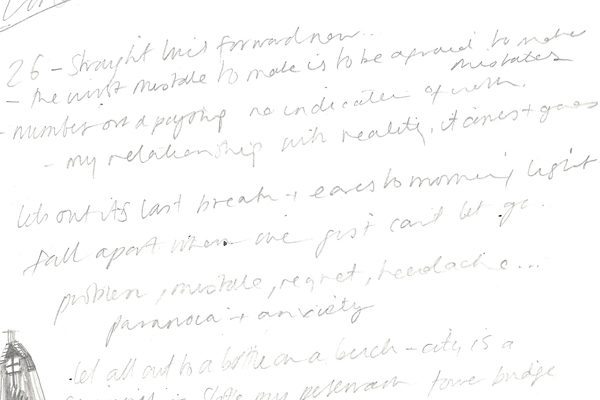 26 - Straight lines forward now...
- the worst mistake to make is to be afraid to make mistakes
- number on a payslip no indicator of worth.
- my relationship with reality, it comes + goes
lets out its last breath + eases to morning light
fall apart when we just can't let go.
problem, mistake, regret, headache...
paranoia + anxiety
let all out to a bottle on a bench - city is a
in my tower bridge